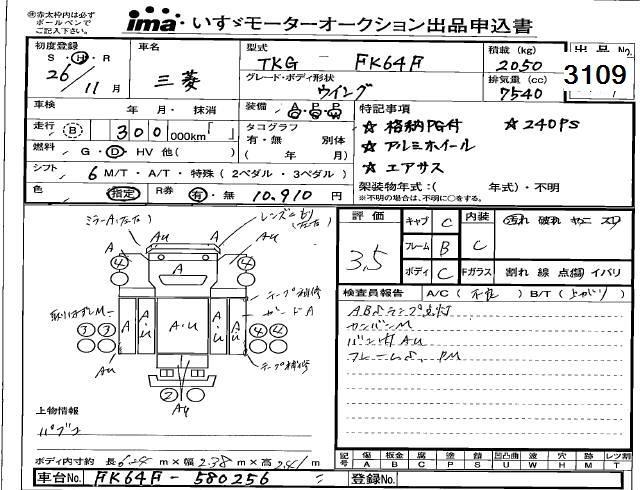 ㊟赤太枠内は必ず
ボールペンで
ご記入下さい。
ima いすゞモーターオークション出品申込書
初度登録
S・H・R
26/11月
車名
三菱
型式
TKG - FK64F
グレード・ボディ形状
ウイング
積載 (kg)
2050
排気量 (cc)
7540
出品No.
3109
車検 年・月・抹消
装備 A・P・P
走行 (B) 300 000km「 」
タコグラフ
有・無 別体
( 年 月)
燃料 G・D・HV 他( )
シフト 6 M/T・A/T・特殊 (2ペダル・3ペダル)
色 指定 R券 有・無 10,910 円
特記事項
☆ 格納PG付 ☆ 240PS
☆ アルミホイール
☆ エアサス
架装物年式:( 年式)・不明
※不明の場合は、不明に〇をする。
評価
3.5
キャブ C
フレーム B
ボディ C
内装 C
Fガラス
汚れ 破れ ヤニ スリ
割れ 線 点傷 イバリ
検査員報告 A/C (不良) B/T (上がり)
ABSランプ点灯
カンバンM
バン内AU
ミラーA
AU
テープ補修
ガードA
テープ補修
A
A・U
上物情報
ボディ内寸約 長 6.24 m×幅 2.38 m×高 2.41 m
記号 傷 A 板金 B 腐 C 塗 P 錆 S 凹凸曲 U 波 W 穴 H 跡 M レツ割 T
車台No. FK64F-580256
登録No.